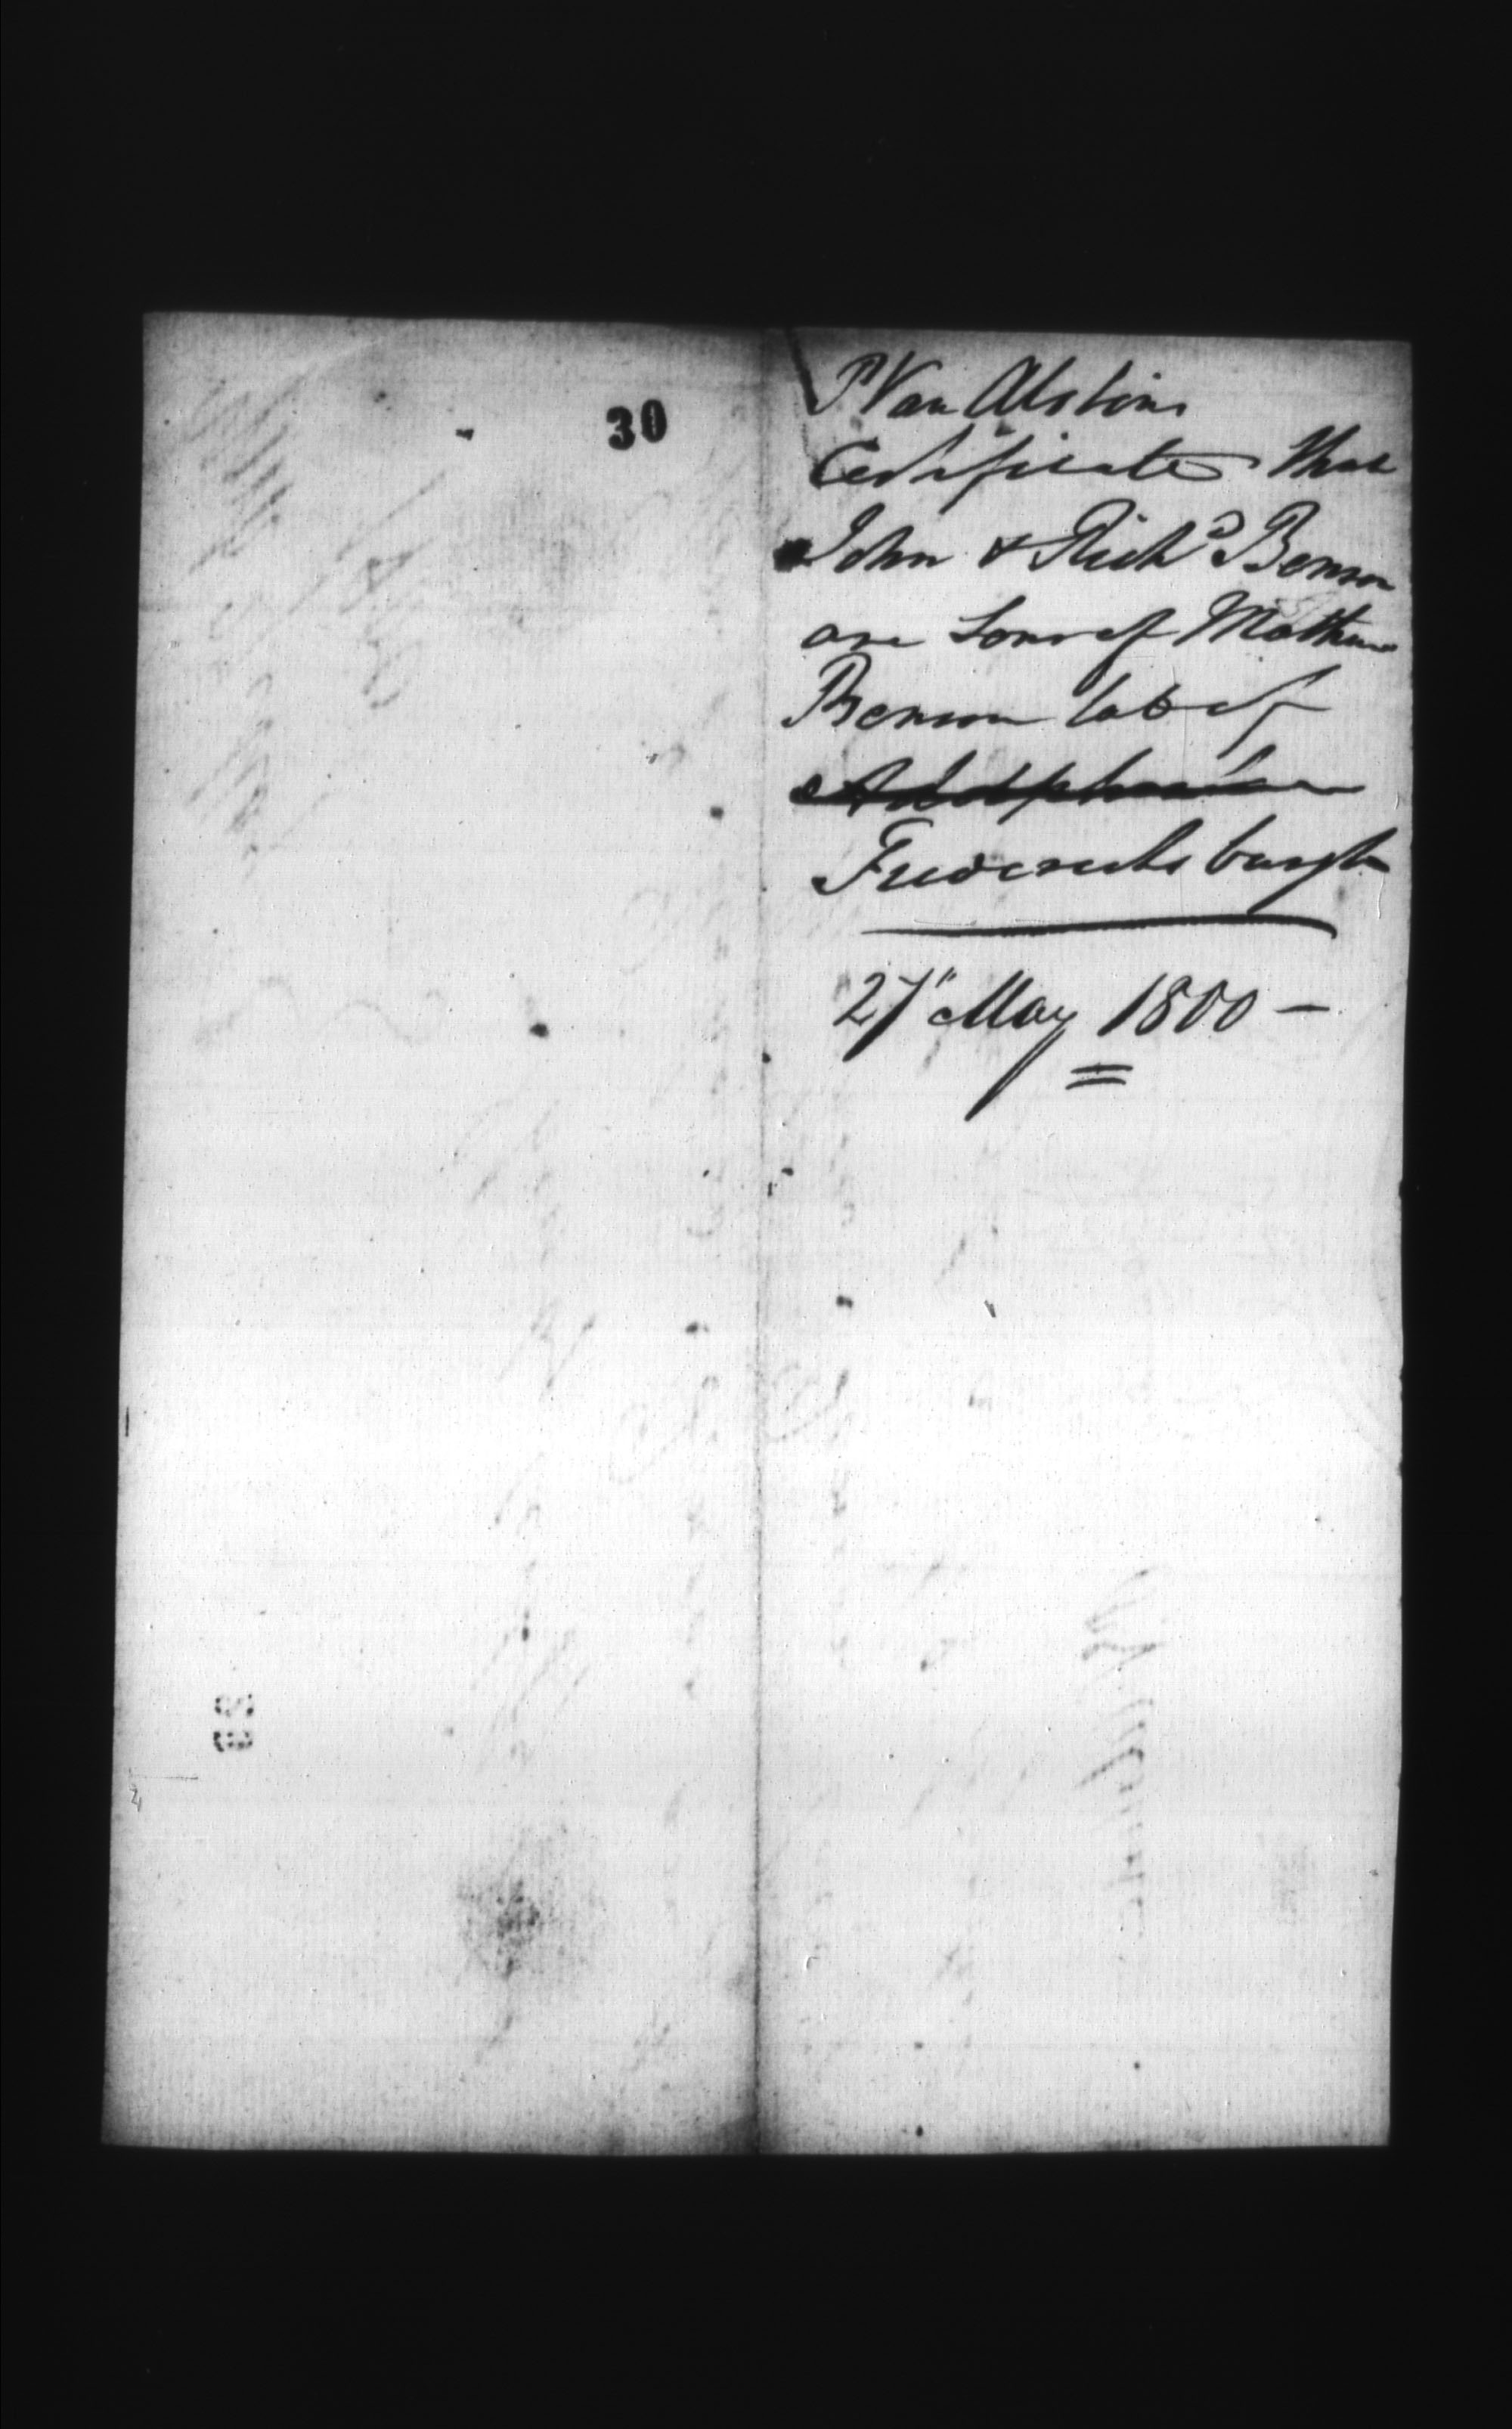 30
P Van Alstine
Certificate that
John & Rich<sup>d</sup> Benson
are Sons of Mathew
Benson late of
Adolphus
Fredericksburgh
27" May 1800 -